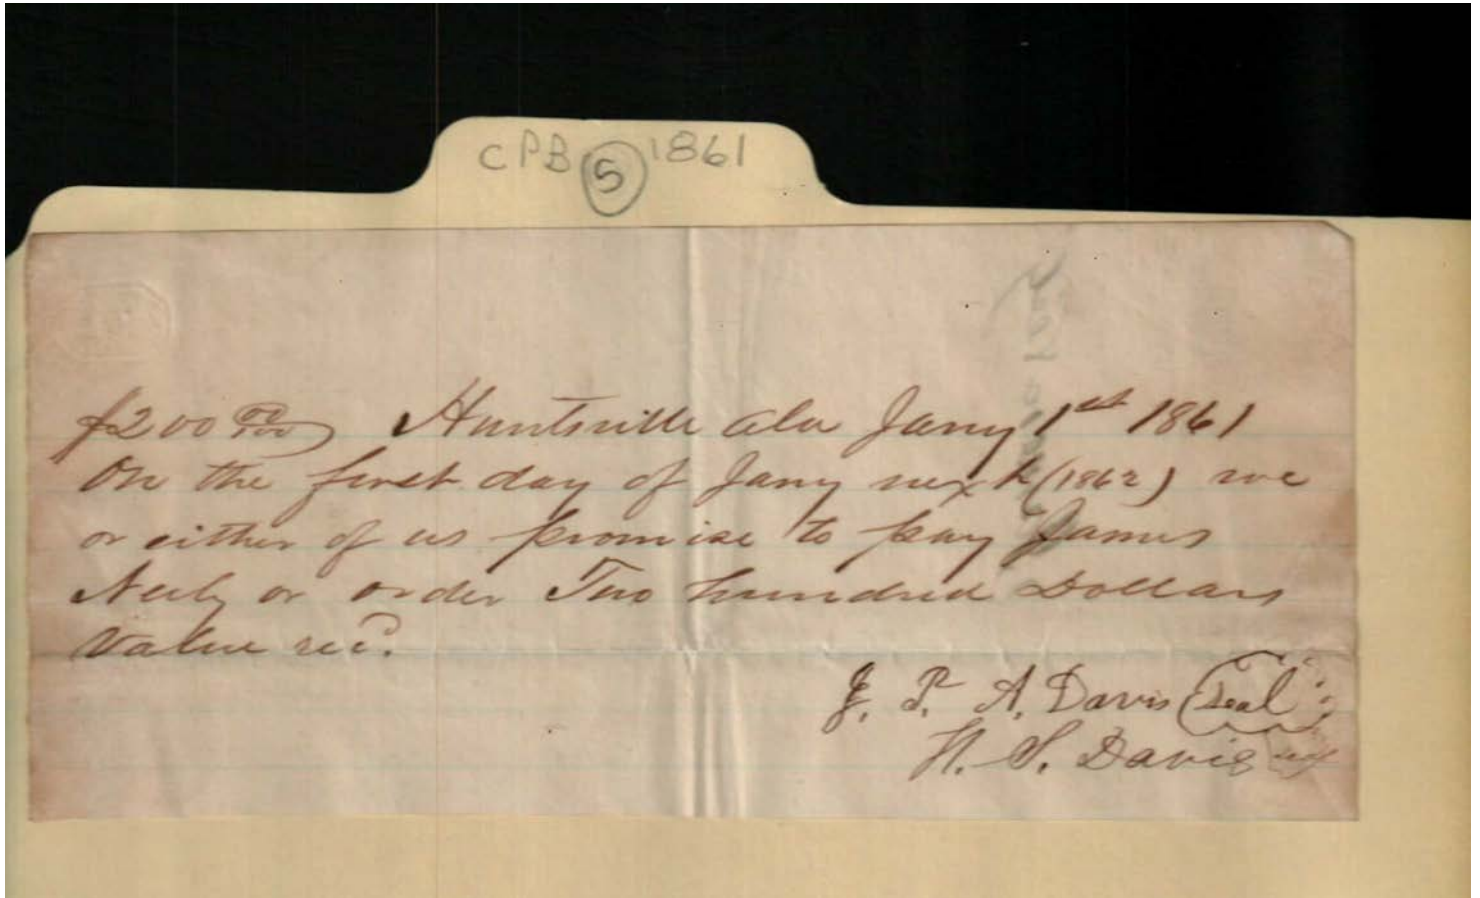 CPB 5 1861
$200 00/100 Huntsville Ala Jany 1st 1861
On the first day of Jany next (1862) we
or either of us promise to pay James
Neely or order Two hundred Dollars
Value recd.
J. P. A. Davis Seal
H. S. Davis